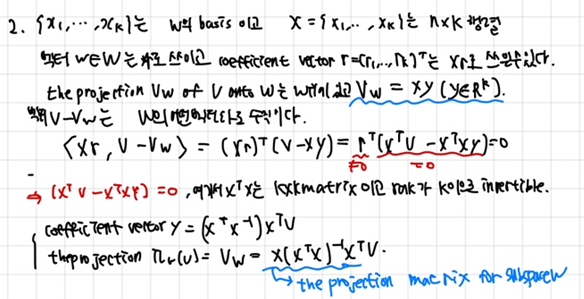 2. {x₁, ⋯, xₖ}는 W의 basis 이고 X = {x₁, ⋯, xₖ}는 n×k 행렬
벡터 w∈W는 로 쓰이고 coefficient vector r=(r₁,⋯,rₖ)ᵀ는 Xr로 쓰일수있다.
the projection Vw of V onto W는 W이고 Vw = Xy (y∈Rᵏ).
벡터 V-Vw는 W의 벡터로 수직이다.
⟨Xr, V-Vw⟩ = (Xr)ᵀ(V-Xy) = rᵀ(XᵀV - XᵀXy) = 0
≠0 =0
→ (XᵀV - XᵀXy) = 0, 여기서 XᵀX는 k×k matrix 이고 rank가 k이므로 invertible.
coefficient vector y = (XᵀX⁻¹)XᵀV
the projection Πᵥ(v) = Vw = X(XᵀX)⁻¹XᵀV.
→ the projection matrix for subspace W